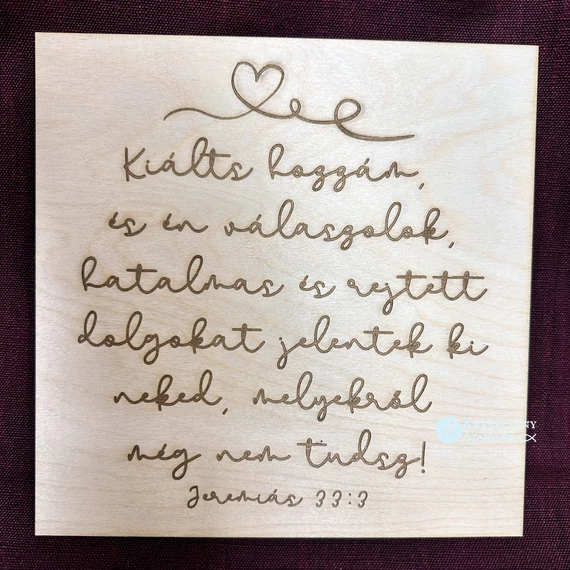 Kiálts hozzám,
és én válaszolok,
hatalmas és rejtett
dolgokat jelentek ki
neked, melyekről
még nem tudsz!
Jeremiás 33:3